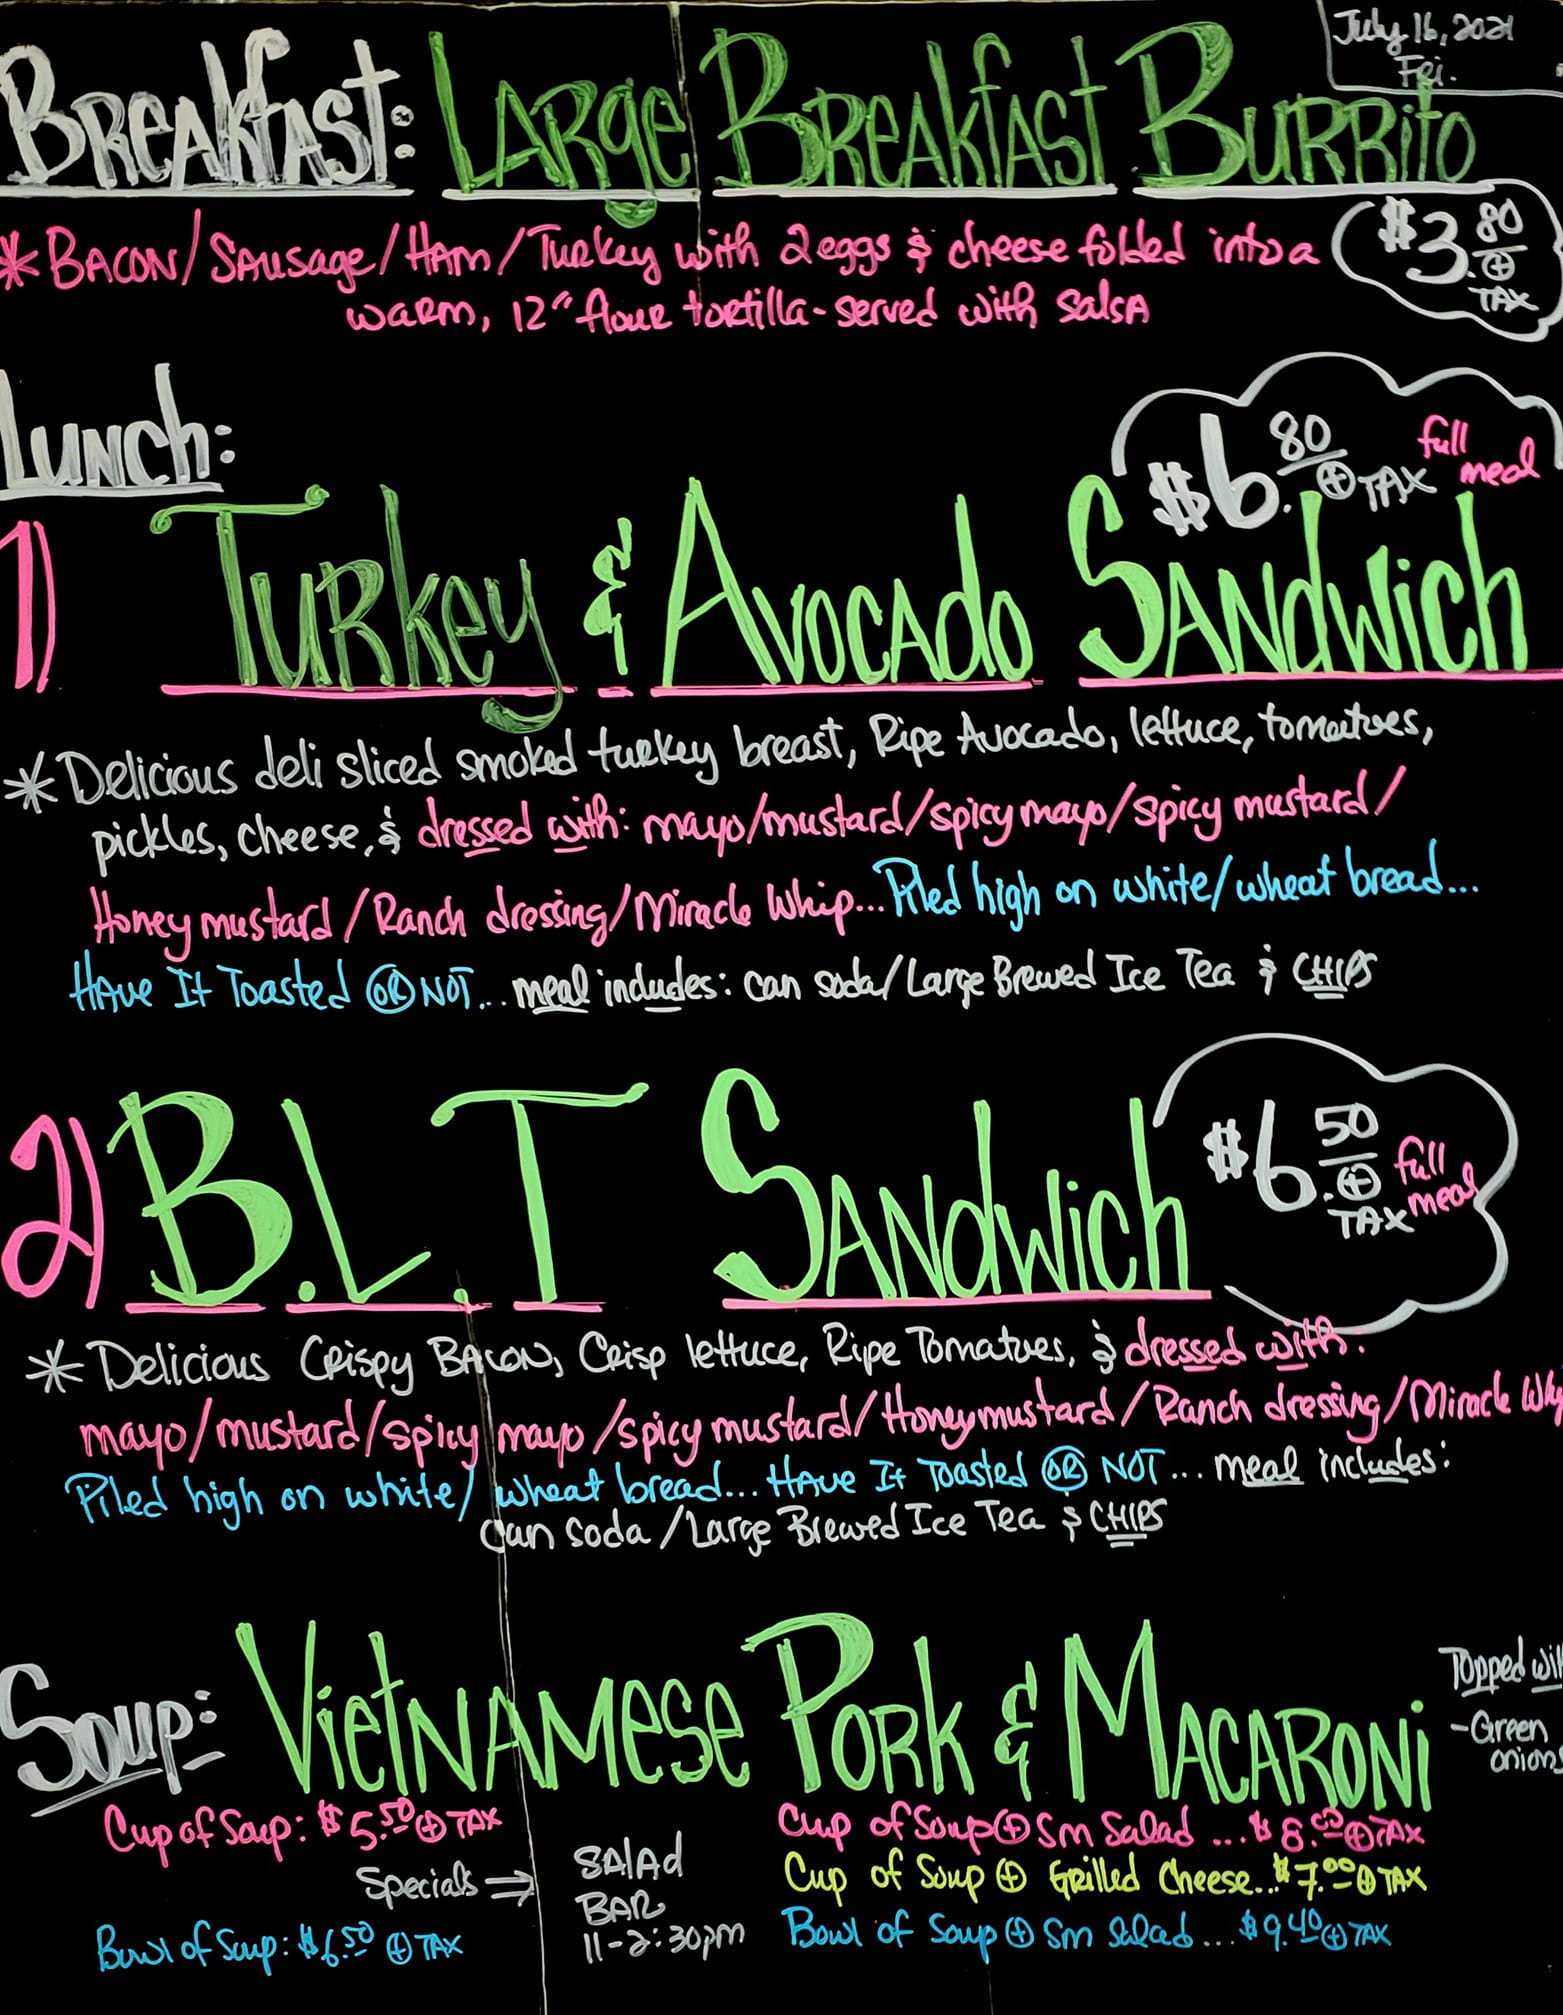 July 16, 2021
Fri.
Breakfast: Large Breakfast Burrito
* Bacon/Sausage/Ham/Turkey with 2 eggs & cheese folded into a
warm, 12" flour tortilla - served with salsa
$3.80 + TAX
Lunch:
$6.80 + TAX full meal
1) Turkey & Avocado Sandwich
* Delicious deli sliced smoked turkey breast, Ripe Avocado, lettuce, tomatoes,
pickles, cheese, & dressed with: mayo/mustard/spicy mayo/spicy mustard/
Honey mustard/Ranch dressing/Miracle Whip... Piled high on white/wheat bread...
Have It Toasted OR NOT... meal includes: can soda/Large Brewed Ice Tea & CHIPS
2) B.L.T Sandwich
$6.50 + TAX full meal
* Delicious Crispy Bacon, Crisp lettuce, Ripe Tomatoes, & dressed with:
mayo/mustard/spicy mayo/spicy mustard/Honey mustard/Ranch dressing/Miracle Whip
Piled high on white/wheat bread... Have It Toasted OR NOT... meal includes:
can soda/Large Brewed Ice Tea & CHIPS
Soup: Vietnamese Pork & Macaroni
Topped with
- Green
onions
Cup of Soup: $5.50 + TAX
Specials ⇒
Bowl of Soup: $6.50 + TAX
SALAD
BAR
11-2:30pm
Cup of Soup + Sm Salad ... $8.00 + TAX
Cup of Soup + Grilled Cheese... $7.00 + TAX
Bowl of Soup + Sm Salad... $9.40 + TAX